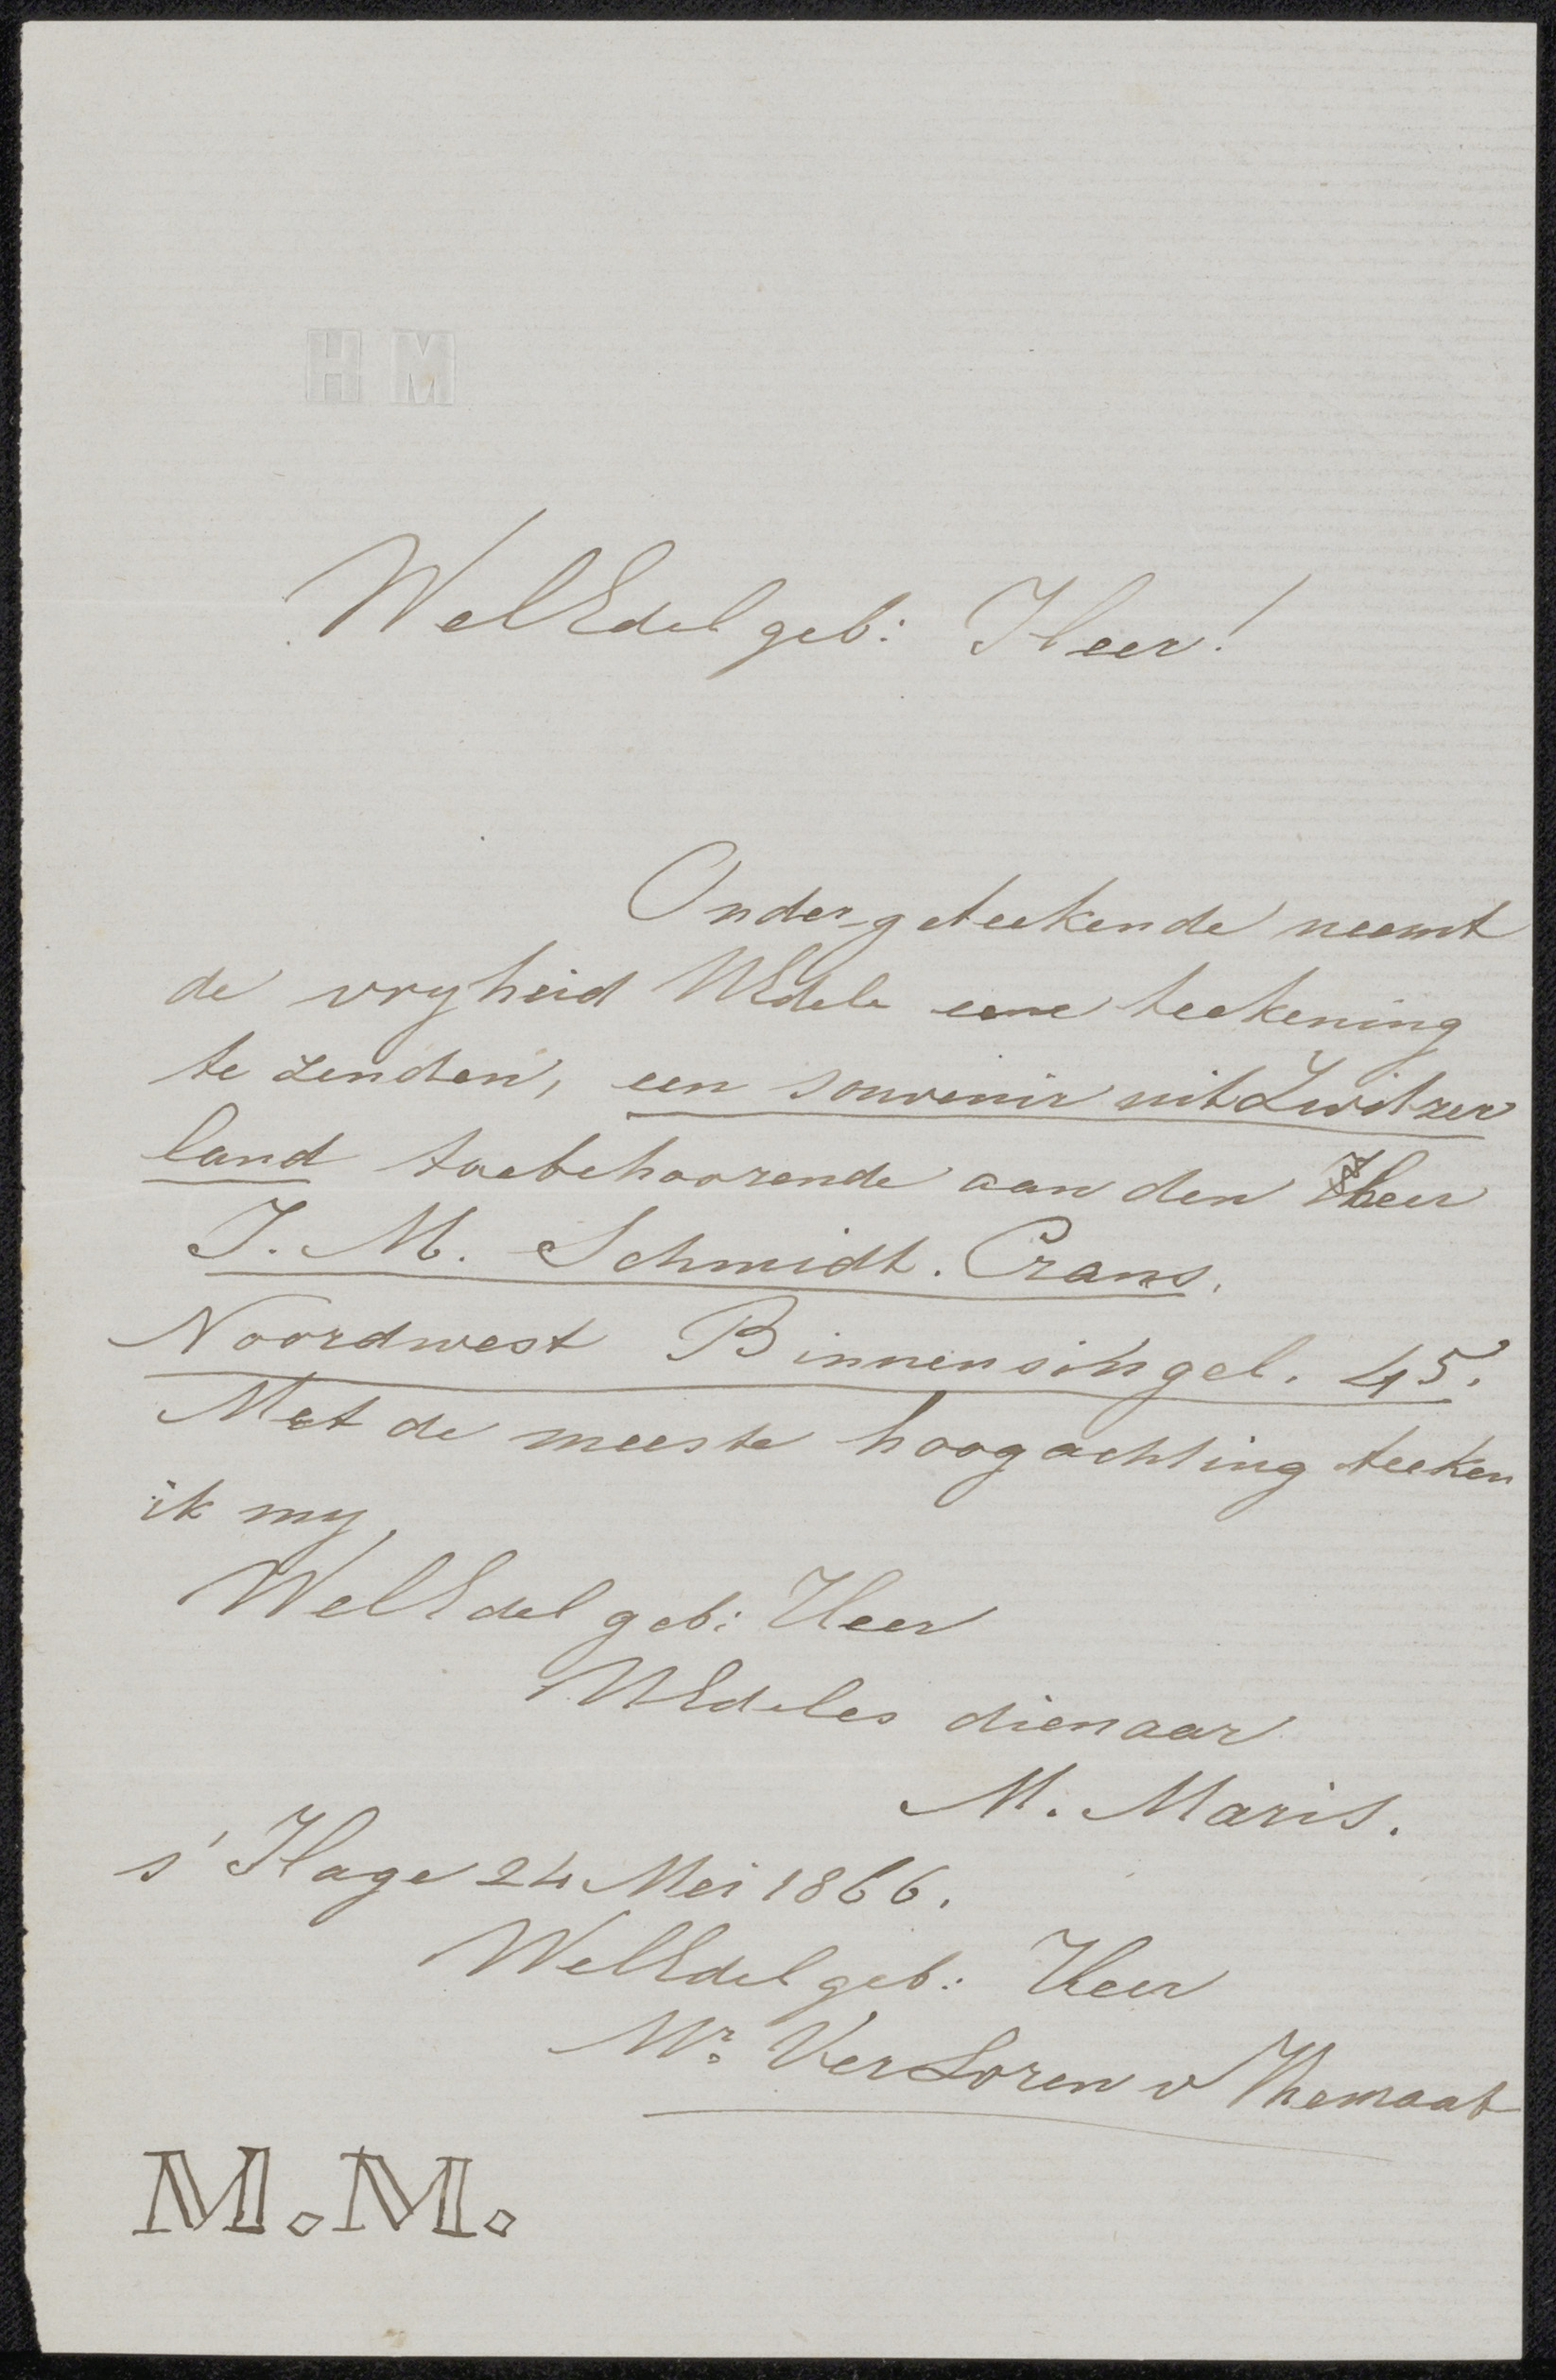 HM
WelEdelgeb: Heer!
Onder-geteekende neemt
de vryheid UEdele eene teekening
te zenden, een souvenir uit Zwitzer
land toebehoorende aan den Heer
J. M. Schmidt. Crans.
Noordwest Binnensingel. 45.
Met de meeste hoogachting teeken
ik my
WelEdelgeb: Heer
UEdeles dienaar
M. Maris.
s' Hage 24 Mei 1866.
WelEdelgeb: Heer
Mr. VerLoren v Themaat
M.M.